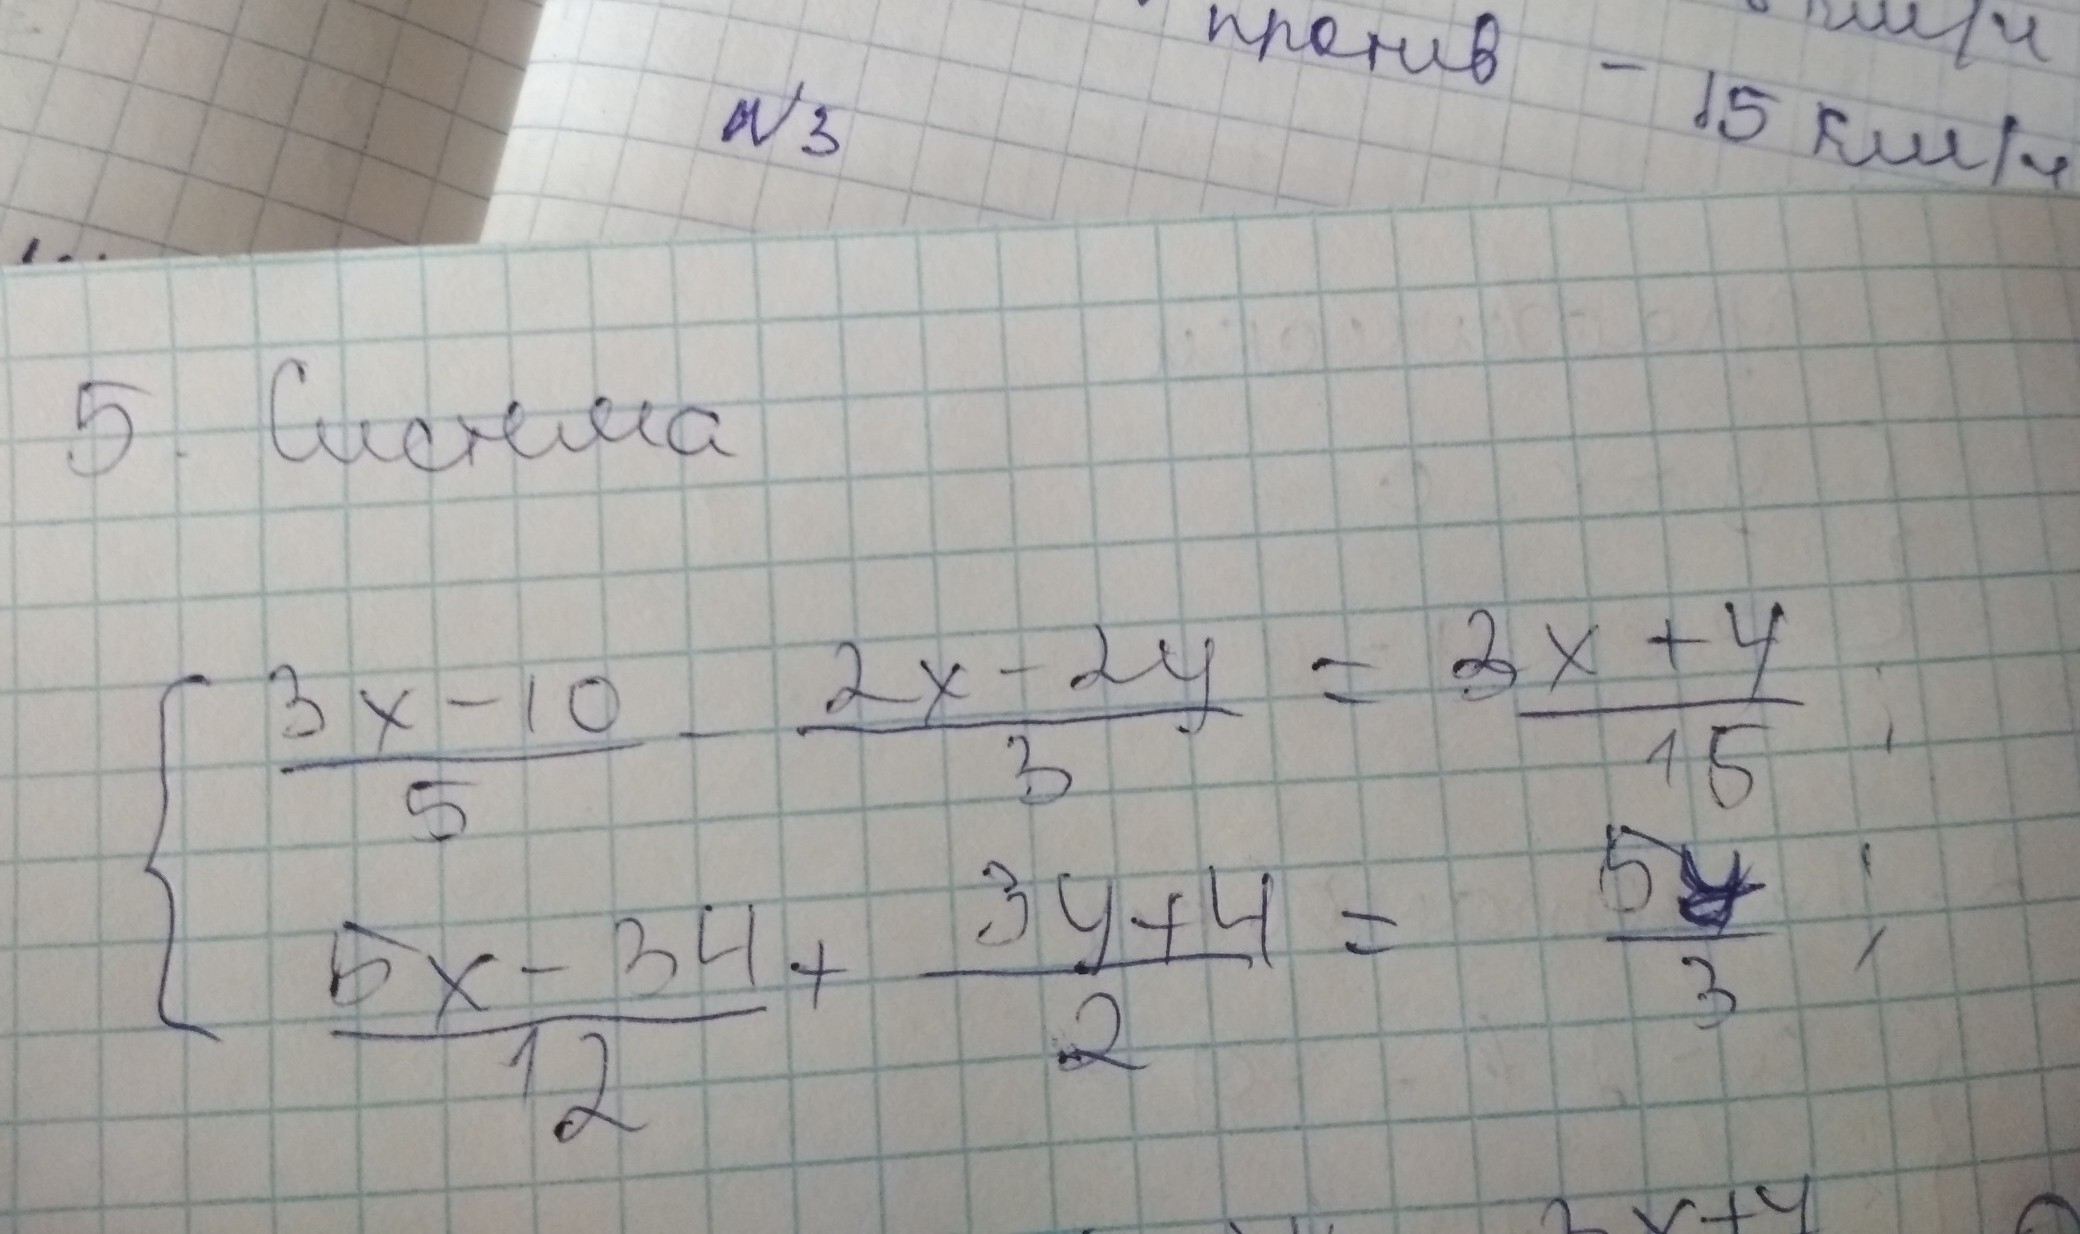 км/ч
против - 15 км/ч
N3
5. Система
{ (3x-10)/5 - (2x-2y)/3 = (3x+4)/15 ;
(5x-34)/12 + (3y+4)/2 = 5y/3 ;
3x+y